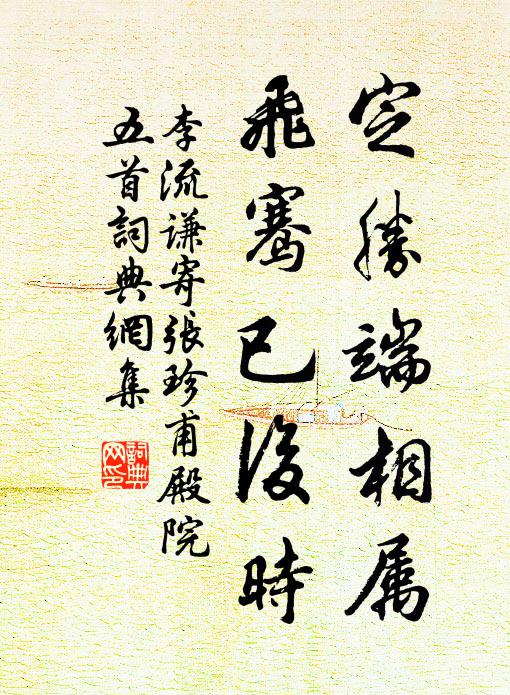 定勝端相属
飛騫已後時
李流謙寄張珍甫殿院
五首詞典網集
詞典网印